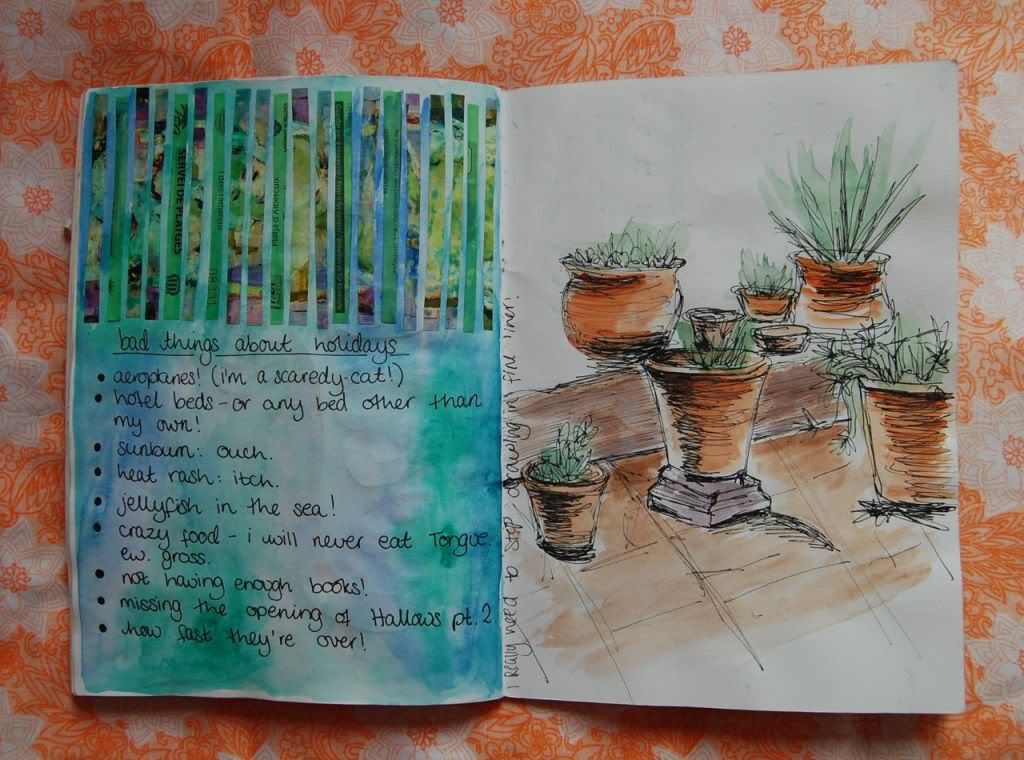 SERVEI DE PLATGES
Platja d'Albercuix
bad things about holidays
• aeroplanes! (i'm a scaredy-cat!)
• hotel beds - or any bed other than
my own!
• sunburn: ouch.
• heat rash: itch.
• jellyfish in the sea!
• crazy food - i will never eat Tongue.
ew. gross.
• not having enough books!
• missing the opening of Hallows pt. 2.
• how fast they're over!
I really need to stop drawing in fine liner!